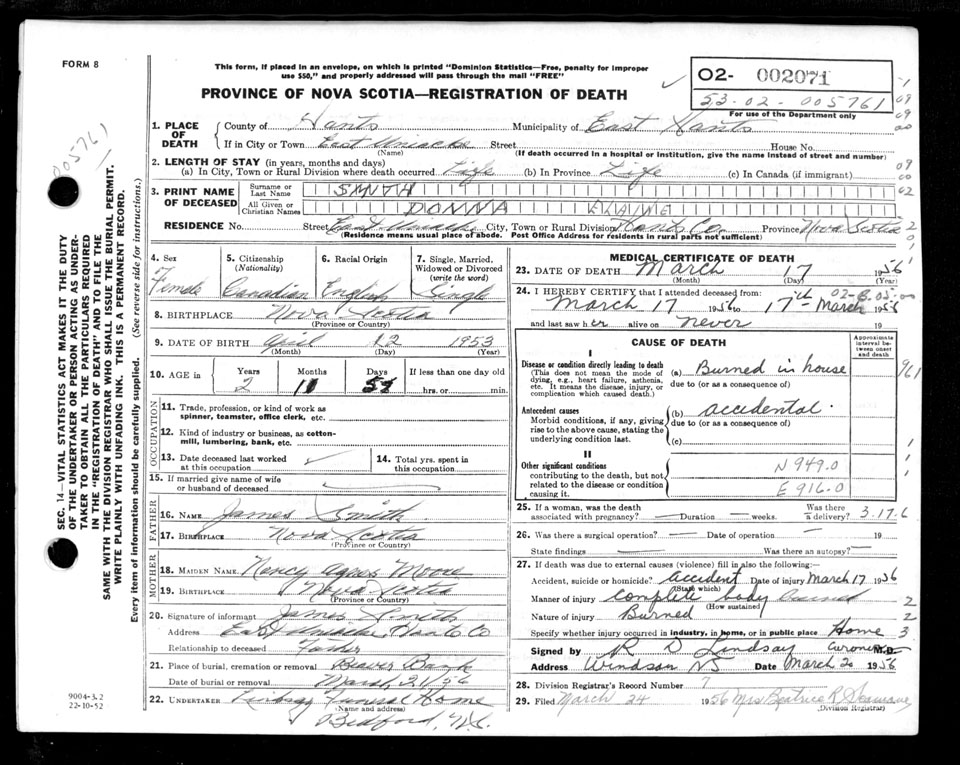 FORM 8
This form, if placed in an envelope, on which is printed "Dominion Statistics—Free, penalty for improper
use $50," and properly addressed will pass through the mail "FREE"
PROVINCE OF NOVA SCOTIA—REGISTRATION OF DEATH
02- 002071
53-02-005761
For use of the Department only
005761
SEC. 14—VITAL STATISTICS ACT MAKES IT THE DUTY
OF THE UNDERTAKER OR PERSON ACTING AS UNDER-
TAKER TO OBTAIN ALL THE PARTICULARS REQUIRED
IN THE "REGISTRATION OF DEATH" AND TO FILE THE
SAME WITH THE DIVISION REGISTRAR WHO SHALL ISSUE THE BURIAL PERMIT.
WRITE PLAINLY WITH UNFADING INK. THIS IS A PERMANENT RECORD.
Every item of information should be carefully supplied. (See reverse side for instructions.)
1. PLACE OF DEATH
County of Hants Municipality of East Hants
If in City or Town East Uniacke Street House No.
(Name) (If death occurred in a hospital or institution, give the name instead of street and number)
2. LENGTH OF STAY (in years, months and days)
(a) In City, Town or Rural Division where death occurred Life (b) In Province Life (c) In Canada (if immigrant)
3. PRINT NAME OF DECEASED
Surname or Last Name SMITH
All Given or Christian Names DONNA ELAINE
RESIDENCE No. Street East Uniacke City, Town or Rural Division Hants Co. Province Nova Scotia
(Residence means usual place of abode. Post Office Address for residents in rural parts not sufficient)
4. Sex Female
5. Citizenship (Nationality) Canadian
6. Racial Origin English
7. Single, Married, Widowed or Divorced (write the word) Single
8. BIRTHPLACE Nova Scotia
(Province or Country)
9. DATE OF BIRTH April 12 1953
(Month) (Day) (Year)
10. AGE in Years Months Days If less than one day old
2 11 hrs. or min.
OCCUPATION
11. Trade, profession, or kind of work as
spinner, teamster, office clerk, etc.
12. Kind of industry or business, as cotton-
mill, lumbering, bank, etc.
13. Date deceased last worked
at this occupation
14. Total yrs. spent in
this occupation
15. If married give name of wife
or husband of deceased
FATHER
16. NAME James Smith
17. BIRTHPLACE Nova Scotia
(Province or Country)
MOTHER
18. MAIDEN NAME Nancy Agnes Moore
19. BIRTHPLACE Nova Scotia
(Province or Country)
20. Signature of informant James Smith
Address East Uniacke, Hants Co
Relationship to deceased Father
21. Place of burial, cremation or removal Beaver Bank
Date of burial or removal March 21/56
22. UNDERTAKER Lindsay Funeral Home
(Name and address)
Bedford, N.S.
9004-3.2
22-10-52
MEDICAL CERTIFICATE OF DEATH
23. DATE OF DEATH March 17 1956
(Month) (Day) (Year)
24. I HEREBY CERTIFY that I attended deceased from:
March 17 1956 to 17th March 1956
and last saw her alive on never 19
CAUSE OF DEATH
Approximate interval between onset and death
I
Disease or condition directly leading to death
(This does not mean the mode of
dying, e.g., heart failure, asthenia,
etc. It means the disease, injury, or
complication which caused death.)
(a) Burned in house
due to (or as a consequence of)
Antecedent causes
Morbid conditions, if any, giving
rise to the above cause, stating the
underlying condition last.
(b) accidental.
due to (or as a consequence of)
(c)
II
Other significant conditions
contributing to the death, but not
related to the disease or condition
causing it.
N 949.0
E 916.0
25. If a woman, was the death
associated with pregnancy? Duration weeks. Was there a delivery? 3-17-6
26. Was there a surgical operation? Date of operation 19
State findings Was there an autopsy?
27. If death was due to external causes (violence) fill in also the following:
Accident, suicide or homicide? accident Date of injury March 17 1956
(State which)
Manner of injury complete body burned
(How sustained)
Nature of injury Burned
Specify whether injury occurred in industry, in home, or in public place Home
Signed by R D Lindsay Coroner M.D.
Address Windsor NS Date March 20 1956
28. Division Registrar's Record Number 7
29. Filed March 24 1956 Mrs Beatrice R
(Division Registrar)